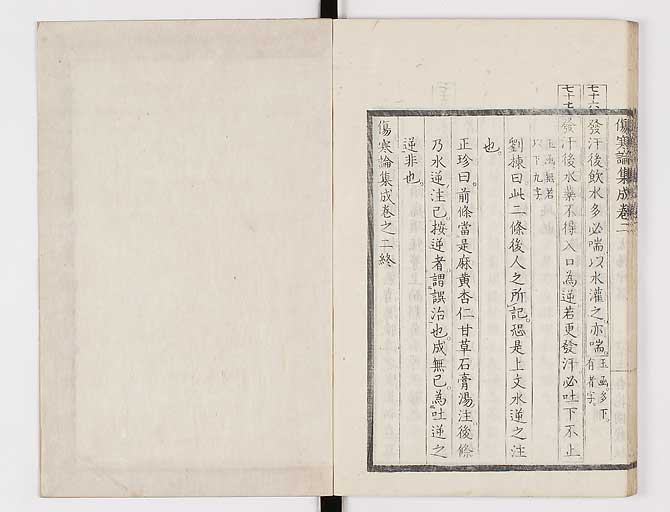 傷寒論集成卷二
七十六 發汗後飲水多必喘以水灌之亦喘。玉函。多下有者字。
七十七 發汗後水藥不得入口為逆若更發汗必吐下不止
玉函無若以下九字
劉棟曰此二條後人之所記。恐是上文水逆之注
也。
正珍曰。前條當是麻黃杏仁甘草石膏湯注後條
乃水逆注已按逆者謂誤治也。成無已。為吐逆之
逆非也。
傷寒論集成卷之二終